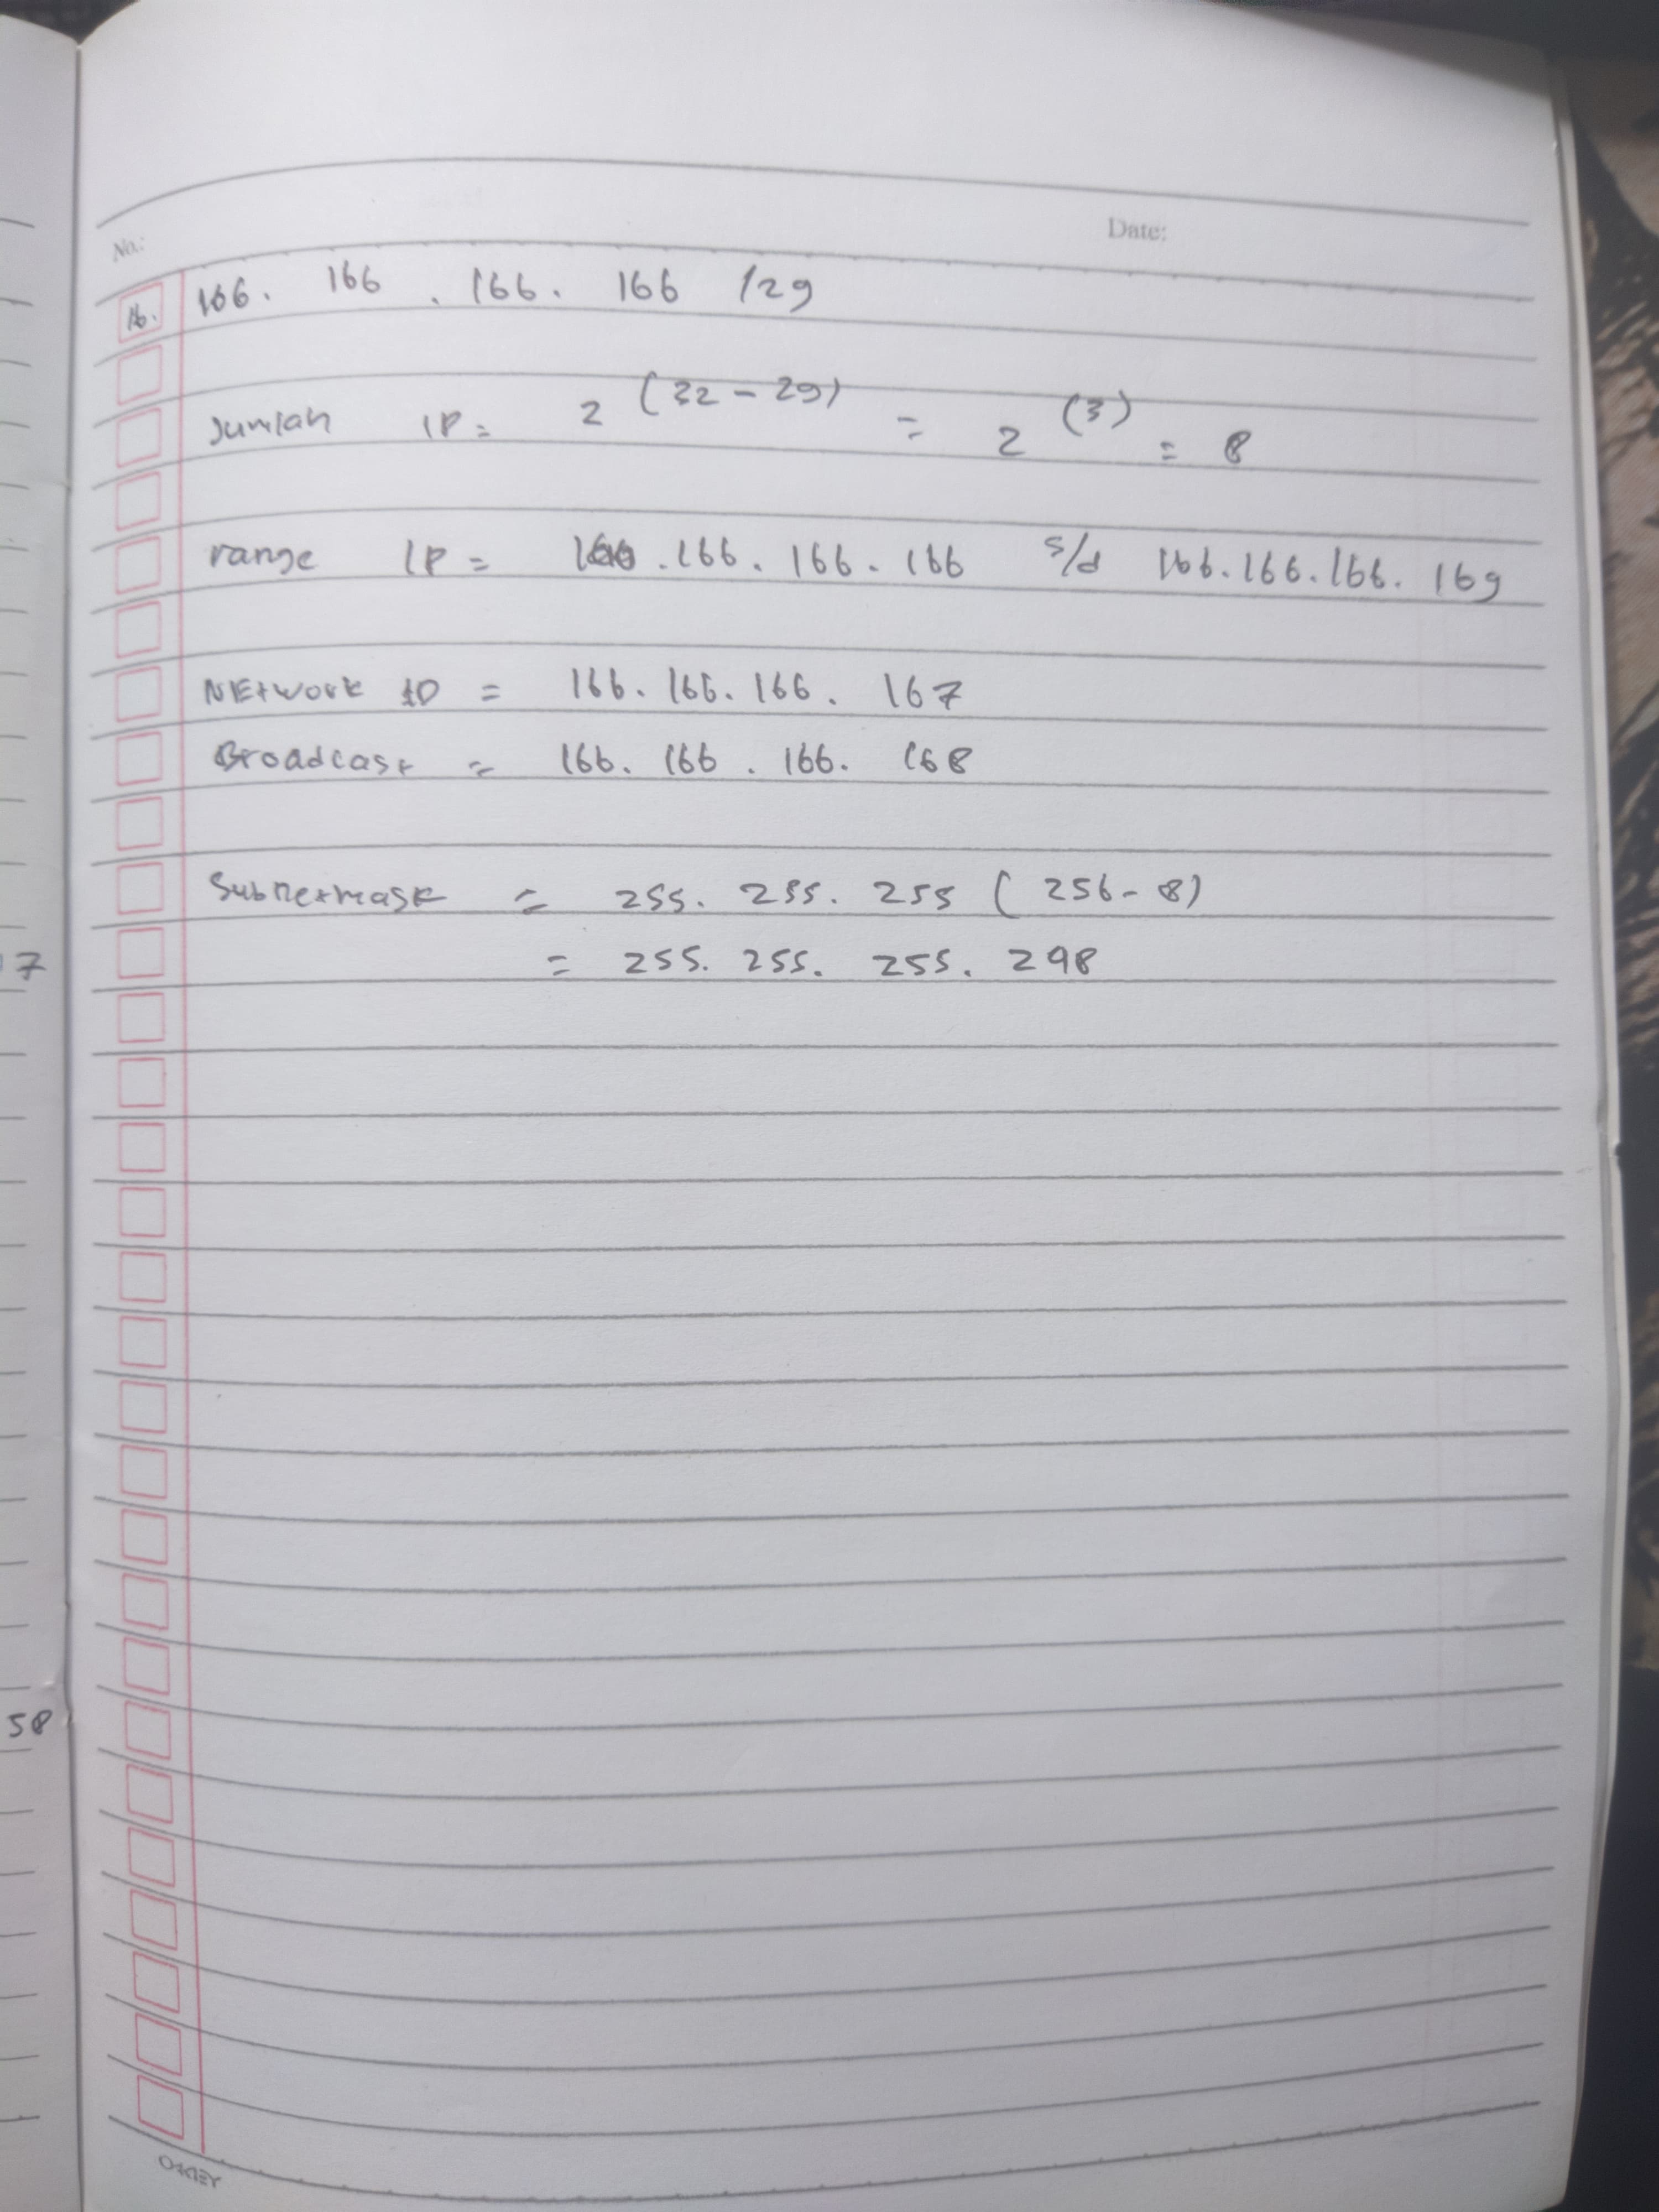 No.:
Date:
16. 166. 166 . 166. 166 /29
Jumlah IP = 2 (32 - 29) = 2 (3) = 8
range IP = 166 .166. 166. 166 s/d 166.166.166. 169
NEtwork ID = 166. 166. 166. 167
Broadcast = 166. 166 . 166. 168
Subnetmask = 255. 255. 255 ( 256 - 8)
= 255. 255. 255. 298
7
58
OKEY